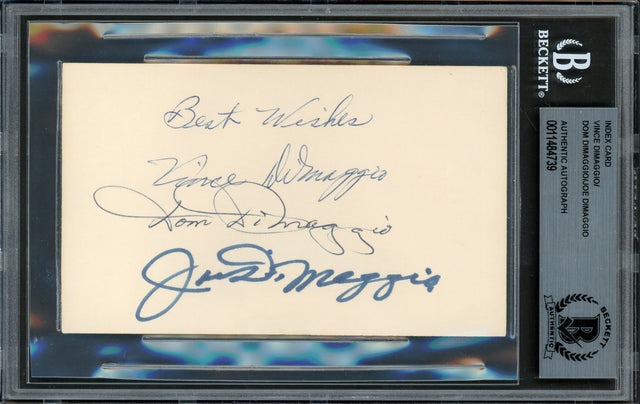 Best Wishes
Vince DiMaggio
Dom DiMaggio
Joe DiMaggio
B
BECKETT®
INDEX CARD
VINCE DIMAGGIO/
DOM DIMAGGIO/JOE DIMAGGIO
AUTHENTIC AUTOGRAPH
0011484739
BECKETT
B
AUTHENTIC